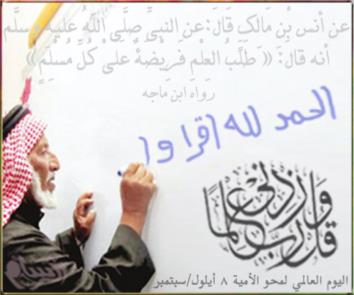 عن أنس بْنِ مَالكٍ قَالَ: عن النبيِّ صَلَّى اللهُ عليْهِ وسلَّم
أنه قَالَ: «طَلَبُ العلْمِ فَريْضَةٌ عَلَىْ كُلِّ مُسْلِمٍ»
رَوَاهُ ابْنُ مَاجه
الحمد لله اقرا وا
وقل رب زدني علما
اليوم العالمي لمحو الأمية ٨ أيلول/سبتمبر